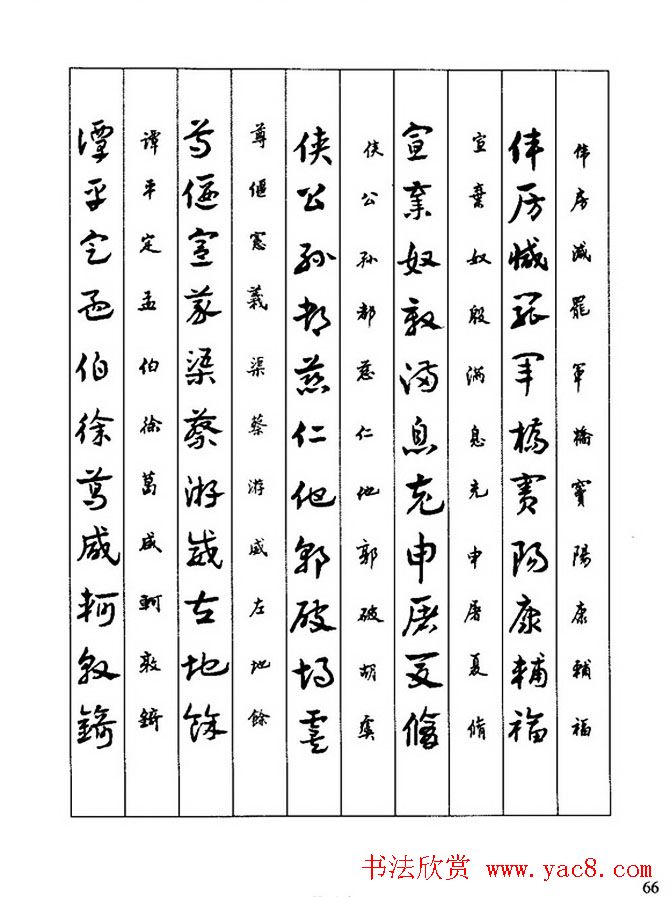 偉房減罷軍橋竇陽康輔福
偉房減罷軍橋竇陽康輔福
宣棄奴殷滿息充申屠夏脩
宣棄奴殷滿息充申屠夏脩
俠公孫都慈仁他郭破胡虞
俠公孫都慈仁他郭破胡虞
尊偃憲義渠蔡游威左地餘
尊偃憲義渠蔡游威左地餘
譚平定孟伯徐葛咸軻敦錡
譚平定孟伯徐葛咸軻敦錡
书法欣赏 www.yac8.com
66